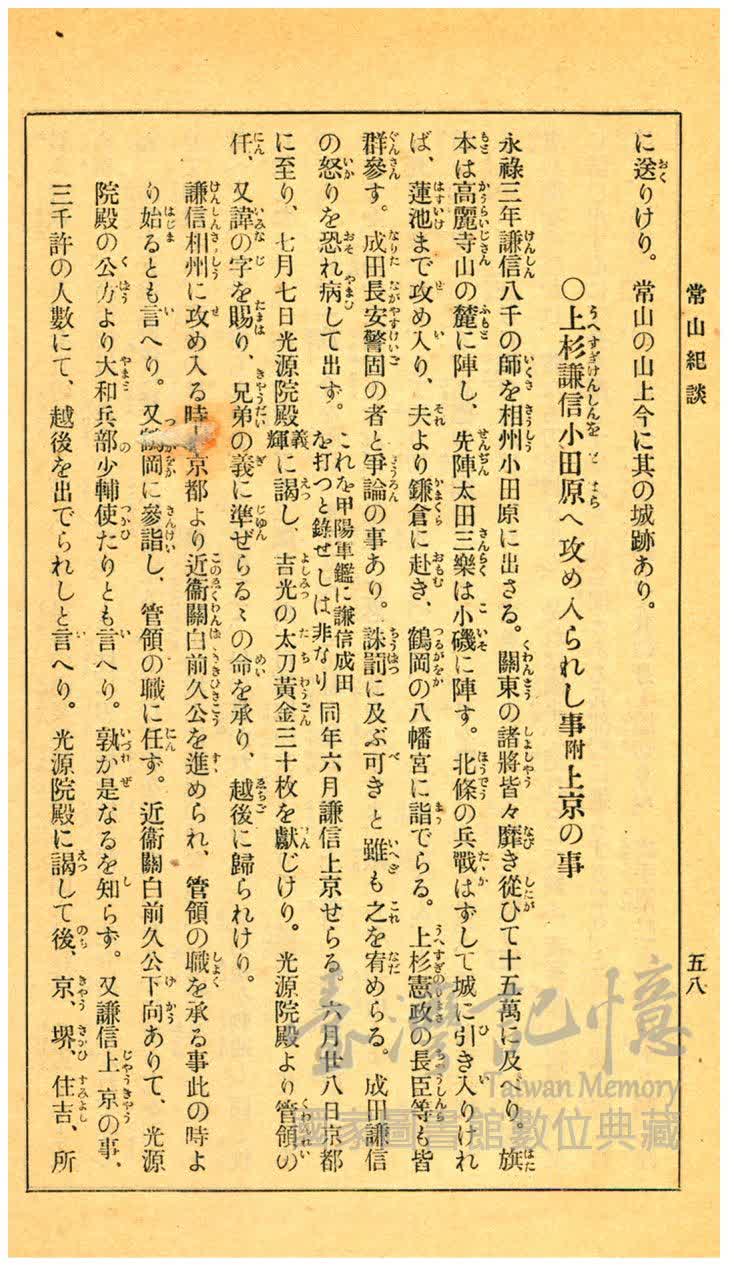 常山紀談
五八
に送りけり。常山の山上今に其の城跡あり。
〇上杉謙信小田原へ攻め入られし事附上京の事
永祿三年謙信八千の師を相州小田原に出さる。關東の諸將皆々靡き從ひて十五萬に及べり。旗
本は高麗寺山の麓に陣し、先陣太田三樂は小磯に陣す。北條の兵戰はずして城に引き入りけれ
ば、蓮池まで攻め入り、夫より鎌倉に赴き、鶴岡の八幡宮に詣でらる。上杉憲政の長臣等も皆
群參す。成田長安警固の者と爭論の事あり。誅罰に及ぶ可きと雖も之を宥めらる。成田謙信
の怒りを恐れ病して出ず。これを甲陽軍鑑に謙信成田を打つと錄せしは非なり同年六月謙信上京せらる。六月廿八日京都
に至り、七月七日光源院殿義輝に謁し、吉光の太刀黃金三十枚を獻じけり。光源院殿より管領の
任、又諱の字を賜り、兄弟の義に準ぜらるゝの命を承り、越後に歸られけり。
謙信相州に攻め入る時京都より近衞關白前久公を進められ、管領の職を承る事此の時よ
り始るとも言へり。又鶴岡に參詣し、管領の職に任ず。近衞關白前久公下向ありて、光源
院殿の公方より大和兵部少輔使たりとも言へり。孰か是なるを知らず。又謙信上京の事、
三千許の人數にて、越後を出でられしと言へり。光源院殿に謁して後、京、堺、住吉、所
臺灣記憶
Taiwan Memory
國家圖書館數位典藏